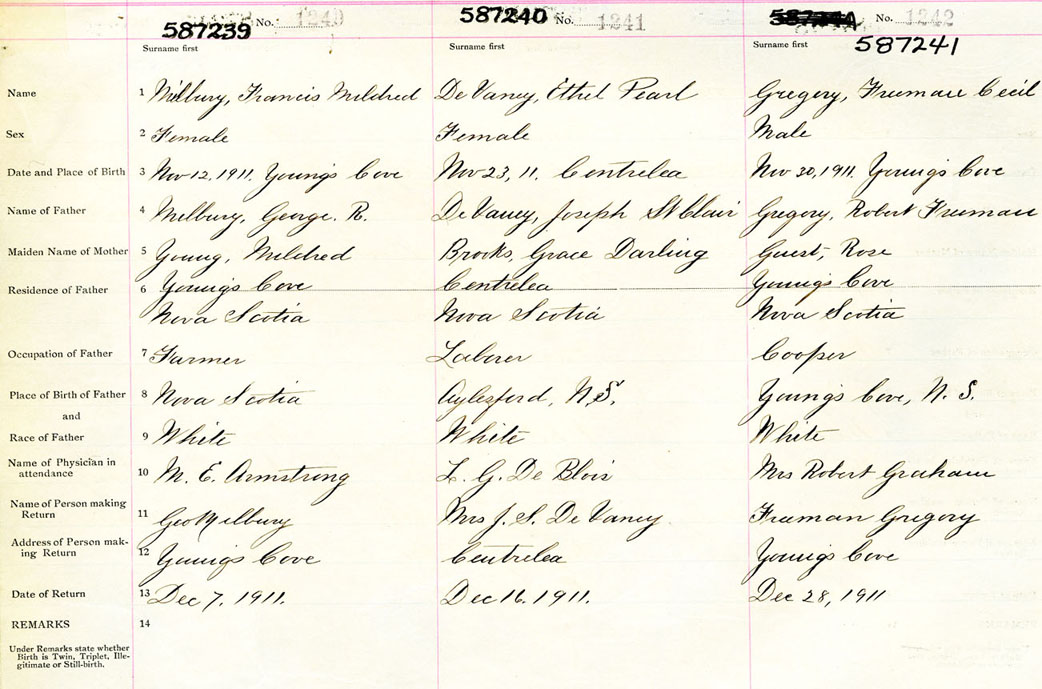 No. 1240
587239
Surname first
587240 No. 1241
Surname first
No. 1242
587241
Surname first
Name
1 Milbury, Francis Mildred
De Vaney, Ethel Pearl
Gregory, Freeman Cecil
Sex
2 Female
Female
Male
Date and Place of Birth
3 Nov 12, 1911. Young's Cove
Nov 23, 11. Centrelea
Nov 30, 1911. Young's Cove
Name of Father
4 Milbury, George. R.
De Vaney, Joseph St Clair
Gregory, Robert Freeman
Maiden Name of Mother
5 Young, Mildred
Brooks, Grace Darling
Guest, Rose
Residence of Father
6 Young's Cove
Nova Scotia
Centrelea
Nova Scotia
Young's Cove
Nova Scotia
Occupation of Father
7 Farmer
Laborer
Cooper
Place of Birth of Father
and
8 Nova Scotia
Aylesford, N.S.
Young's Cove, N. S.
Race of Father
9 White
White
White
Name of Physician in
attendance
10 M. E. Armstrong
L. G. De Blois
Mrs Robert Graham
Name of Person making
Return
11 Geo Milbury
Mrs J. S. De Vaney
Freeman Gregory
Address of Person mak-
ing Return
12 Young's Cove
Centrelea
Young's Cove
Date of Return
13 Dec 7. 1911.
Dec 16. 1911.
Dec 28, 1911
REMARKS
14
Under Remarks state whether
Birth is Twin, Triplet, Ille-
gitimate or Still-birth.